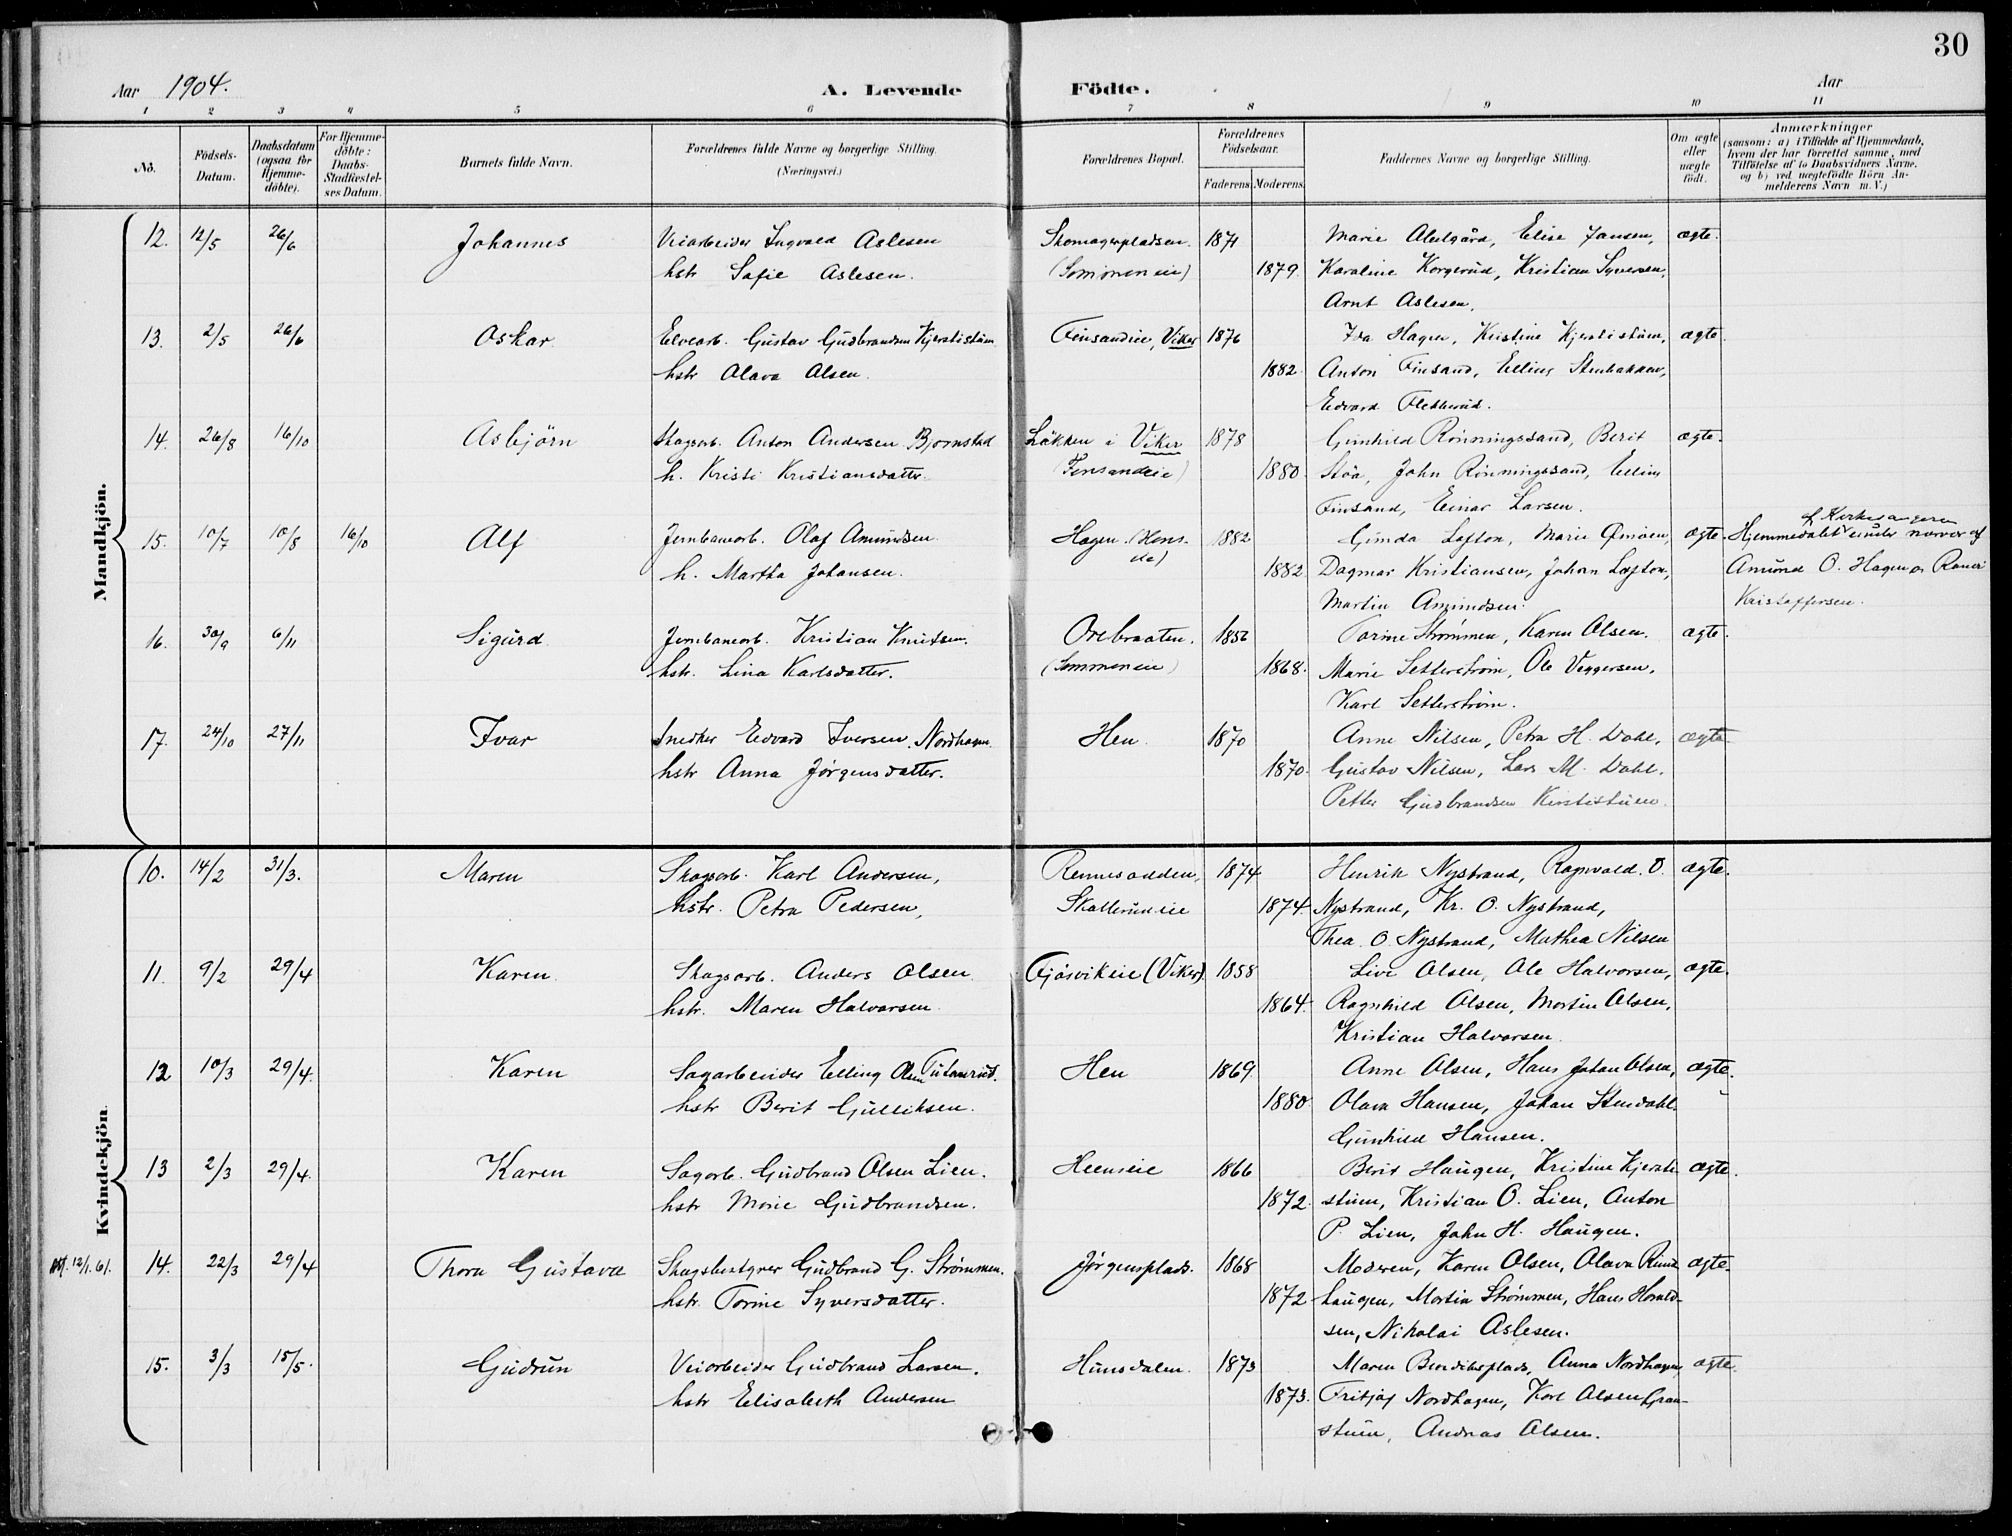 30
Aar 1904. A. Levende Födte. Aar
1 2 3 4 5 6 7 8 9 10 11
No.
Födsels-Datum.
Daabsdatum (ogsaa for Hjemme-döbte).
For Hjemme-döbte: Daabs-Stadfæstel-ses Datum.
Barnets fulde Navn.
Forældrenes fulde Navne og borgerlige Stilling. (Næringsvei.)
Forældrenes Bopæl.
Forældrenes Födselsaar.
Faderens. Moderens.
Faddernes Navne og borgerlige Stilling.
Om ægte eller uægte født.
Anmærkninger (saasom: a) i Tilfælde af Hjemmedaab, hvem der har forrettet samme, med Tilföielse af to Daabsvidners Navne, og b) ved uægtefödte Börn An-melderens Navn m. V.)
Mandkjön.
12. 12/5 26/6 Johannes Veiarbeider Ingvald Aslesen Skomagerpladsen. 1871 Marie Alelgård, Elise Jansen, ægte.
hstr Sofie Aslesen. (Sommeneie) 1879. Karoline Korgerud, Kristian Syversen,
Arnt Aslesen.
13. 2/5 26/6 Oskar. Elvearb. Gustav Gudbrandsen Kjerstistuen Finsandeie, Viker 1876 Ida Hagen, Kristine Kjerstistuen, ægte.
hstr Olava Olsen. 1882. Anton Finsand, Elling Stenbakken,
Edvard Flekkerud.
14. 26/8 16/10 Asbjörn Skogsarb. Anton Andersen Bjørnstad Løkken i Viker 1878 Gunhild Rönningssand, Berit ægte.
h. Kristi Kristiansdatter. (Finsandeie) 1880. Stöa, John Rönningssand, Elling
Finsand, Einar Larsen.
15. 10/7 10/8 16/10 Alf Jernbanearb. Olaf Amundsen Hagen (Hens- 1882 Gunda Lofton, Marie Ømoen, ægte. Hjemmedøbt af Kirkesangeren under nærvær af
h. Martha Johansen. eie) 1882. Dagmar Kristiansen, Johan Lofton, Amund O. Hagen og
Martin Amundsen. Kristoffersen.
16. 30/9 6/11 Sigurd Jernbanearb. Kristian Knutsen. Orebraaten. 1852 Torine Strømmen, Karen Olsen. ægte.
hstr. Lina Karlsdatter. (Sommeneie) 1868. Marie Setterstrøm, Ole Veggersen,
Karl Setterstrøm.
17. 24/10 27/11 Ivar Snedker Edvard Iversen Nordhagen. Hen. 1870 Anne Nilsen, Petra H. Dahl, ægte
hstr Anna Jørgensdatter. 1870. Gustav Nilsen, Lars M. Dahl.
Petter Gudbrandsen Kirstistuen.
Kvindekjön.
10. 14/2 31/3. Maren Skogsarb. Karl Andersen, Rennesodden, 1874 Henrik Nystrand, Ragnvald O. ægte.
hstr. Petra Pedersen, Skollerudeie 1874. Nystrand, Kr. O. Nystrand,
Thea O. Nystrand, Mathea Nilsen
11. 9/2 29/4 Karen. Skogsarb. Anders Olsen Gjösvikeie (Viker) 1858 Live Olsen, Ole Halvorsen, ægte.
hstr. Maren Halvorsen. 1864. Ragnhild Olsen, Morten Olsen,
Kristian Halvorsen.
12 10/3 29/4. Karen Sagarbeider Elling Olsen Tutanrud. Hen 1869 Anne Olsen, Hans Johan Olsen, ægte.
hstr Berit Gulliksen. 1880. Olava Hansen, Johan Stendahl.
Gunhild Hansen.
13 2/3 29/4. Karen Sagarb. Gudbrand Olsen Lien. Henseie 1866 Berit Haugen, Kristine Kjersti- ægte.
hstr Marie Gudbrandsen. 1872. stuen, Kristian O. Lien, Anton
P. Lien, John H. Haugen.
12/1.61. 14. 22/3 29/4 Thora Gustava Skogsbestyrer Gudbrand G. Strømmen. Jørgensplads. 1868 Moderen, Karen Olsen, Olava Rund- ægte.
hstr. Torine Syversdatter. 1872 haugen, Martin Strømmen, Hans Harald-
sen, Nikolai Aslesen.
15. 3/3 15/5. Gudrun Veiarbeider Gudbrand Larsen. Hunsdalen. 1873 Maren Bendiksplads, Anna Nordhagen, ægte.
hstr Elisabeth Andersen 1873. Fritjof Nordhagen, Karl Olsen Gran-
stuen, Andreas Olsen.